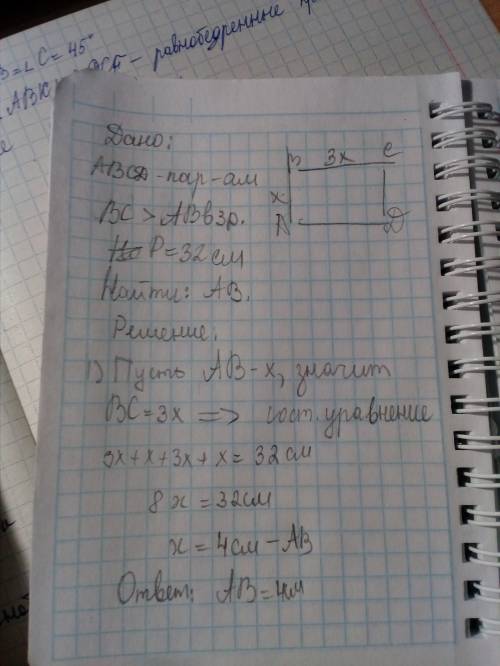 B = ∠C = 45°
ABK
равнобедренные
Дано:
ABCD - пар-ам
BC > AB в 3 р.
P = 32 см
Найти: AB.
Решение.
1) Пусть AB - x, значит
BC = 3x => сост. уравнение
3x + x + 3x + x = 32 см
8x = 32 см
x = 4 см - AB
Ответ: AB = 4м
B 3x C
x
A D